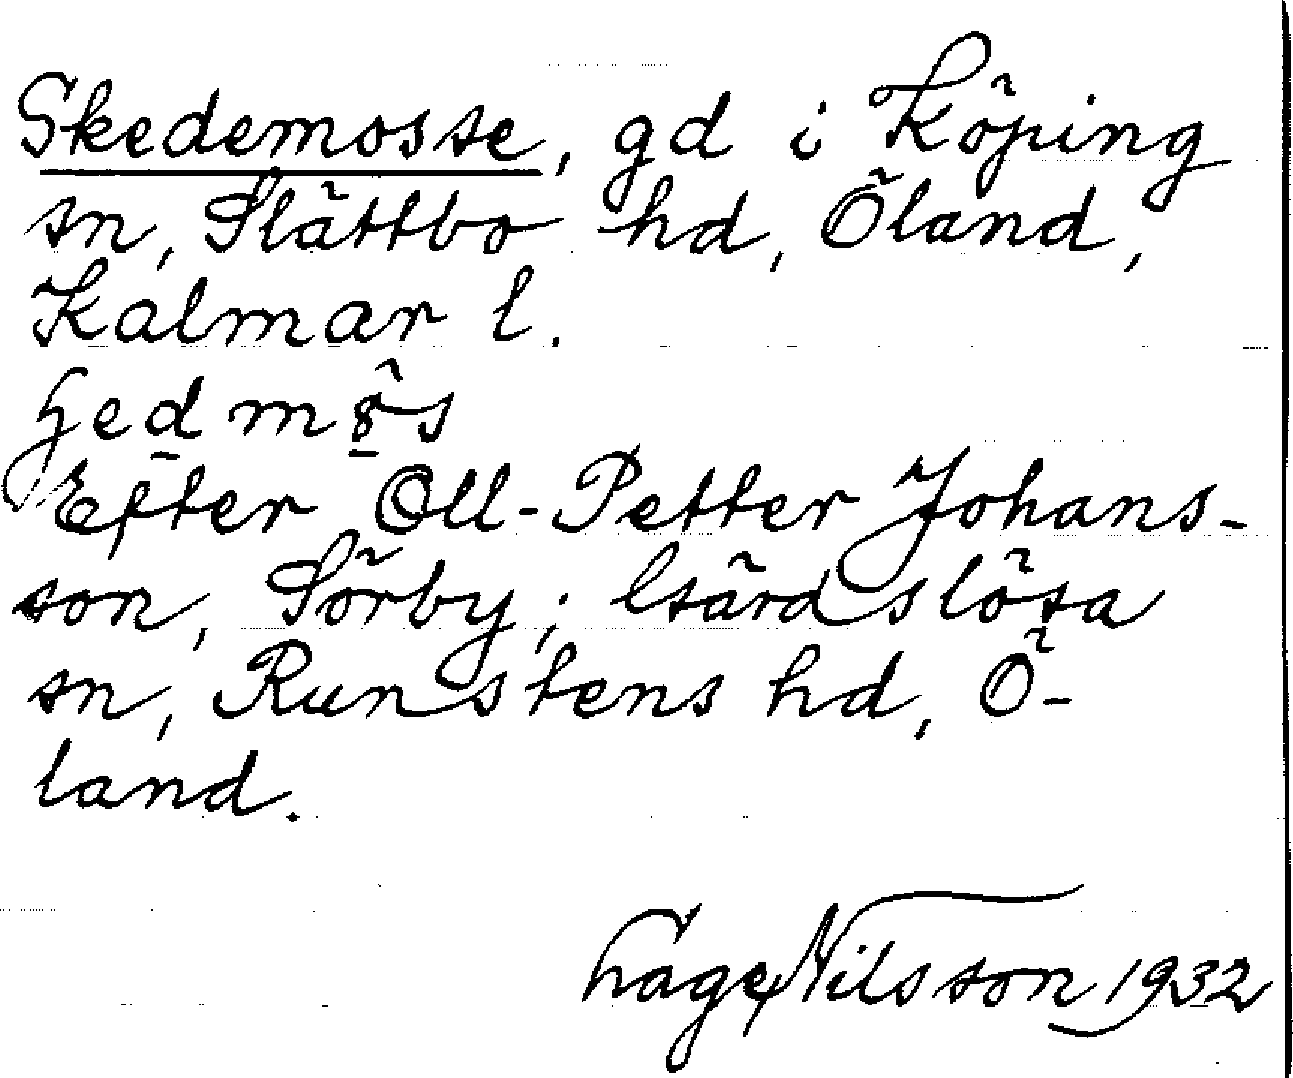 Skedemosse, gd i Köping
sn, Slättbo hd, Öland,
Kalmar l.
Efter Oll-Petter Johans-
son, Sörby; Gärdslösa
sn, Runstens hd, Ö-
land.
Hage Nilsson 1932